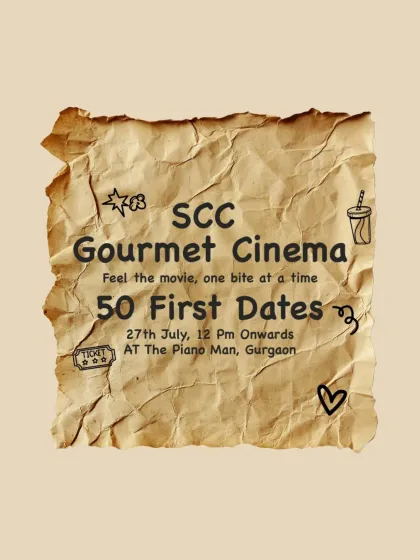 SCC
Gourmet Cinema
Feel the movie, one bite at a time
50 First Dates
27th July, 12 Pm Onwards
AT The Piano Man, Gurgaon
TICKET